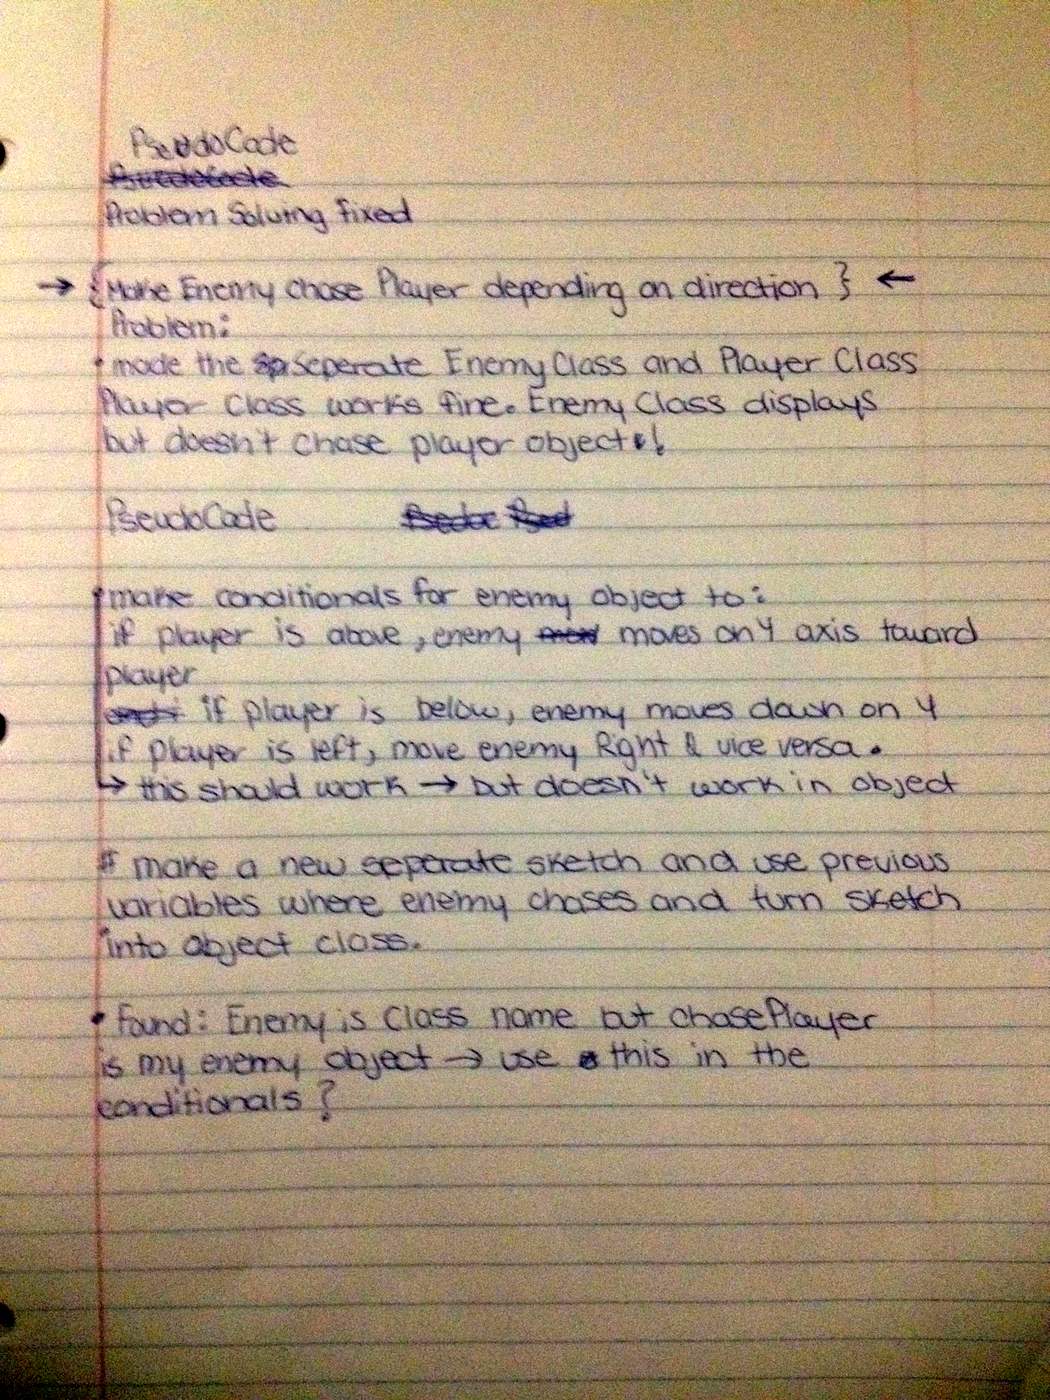 PseudoCode
Problem Solving fixed
→ {Make Enemy chase Player depending on direction } ←
Problem:
• made the seperate Enemy Class and Player Class
Player Class works fine. Enemy Class displays
but doesn't chase player object!
PseudoCode
make conditionals for enemy object to:
if player is above, enemy moves on Y axis toward
player
if player is below, enemy moves down on Y
if player is left, move enemy Right & vice versa.
↳ this should work → but doesn't work in object
# make a new seperate sketch and use previous
variables where enemy chases and turn sketch
into object class.
• Found: Enemy is Class name but chasePlayer
is my enemy object → use this in the
conditionals?